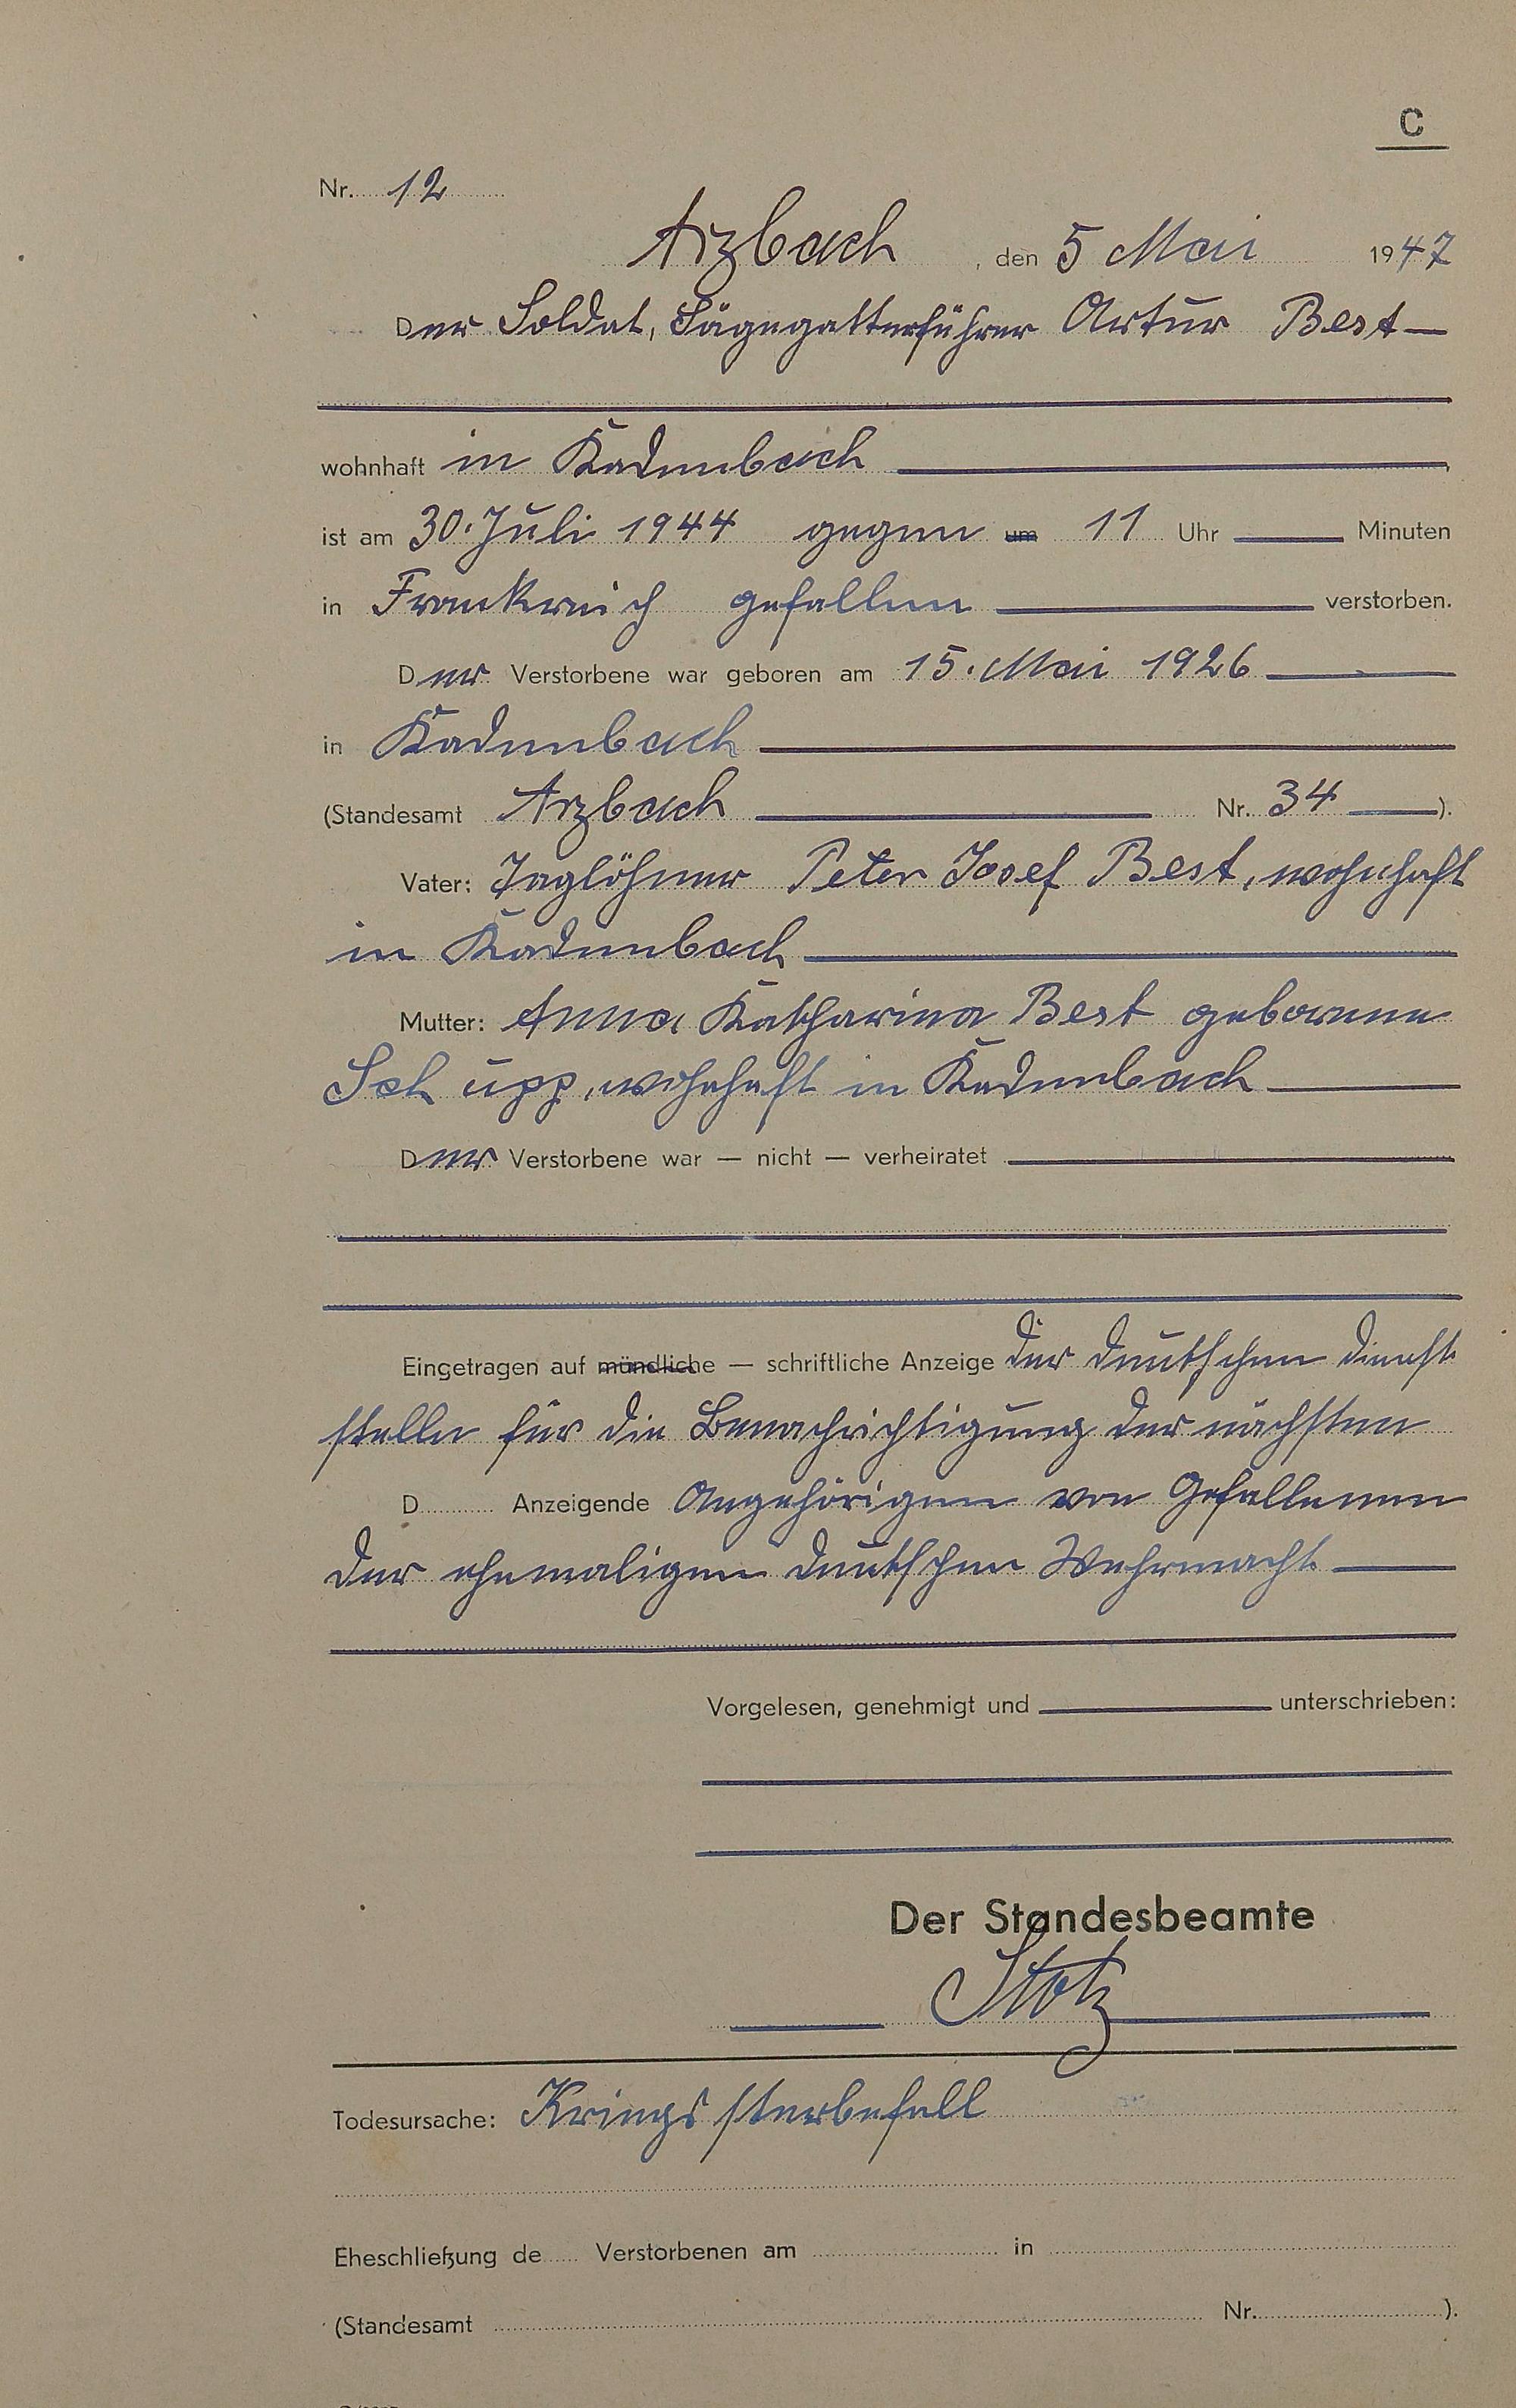 C
Nr. 12
Arzbach, den 5 Mai 1947
Der Soldat, Sägegatterführer Artur Best
wohnhaft in Kadenbach
ist am 30. Juli 1944 gegen um 11 Uhr Minuten
in Frankreich gefallen verstorben.
Der Verstorbene war geboren am 15. Mai 1926
in Kadenbach
(Standesamt Arzbach Nr. 34 ).
Vater: Taglöhner Peter Josef Best, wohnhaft
in Kadenbach
Mutter: Anna Katharina Best geborenen
Schupp, wohnhaft in Kadenbach
Der Verstorbene war — nicht — verheiratet
Eingetragen auf mündliche — schriftliche Anzeige der deutschen Dienst
stelle für die Benachrichtigung der nächsten
D Anzeigende Angehörigen von Gefallenen
der ehemaligen deutschen Wehrmacht
Vorgelesen, genehmigt und unterschrieben:
Der Standesbeamte
Stotz
Todesursache: Kriegssterbefall
Eheschließung de Verstorbenen am in
(Standesamt Nr. ).